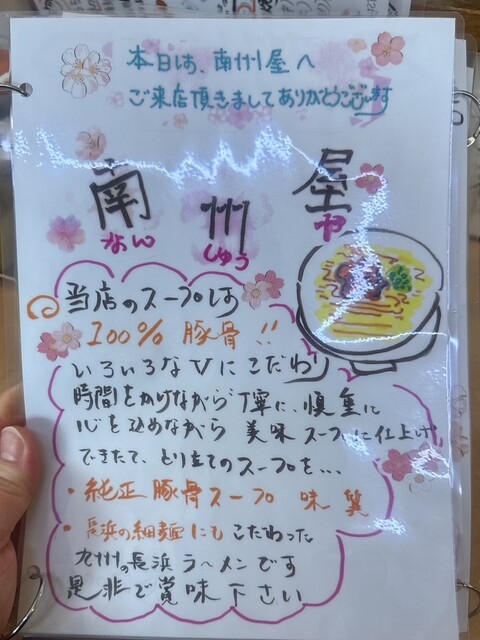 本日は、南州屋へ
ご来店頂きましてありがとうございます
南州屋
なんしゅうや
当店のスープは
100% 豚骨!!
いろいろなVにこだわり
時間をかけながら丁寧に、慎重に
心を込めながら 美味スープに仕上げ
できたて、とり立てのスープを...
・純正豚骨スープ 味
・長浜の細麺にもこだわった
九州の長浜ラーメンです
是非ご賞味下さい